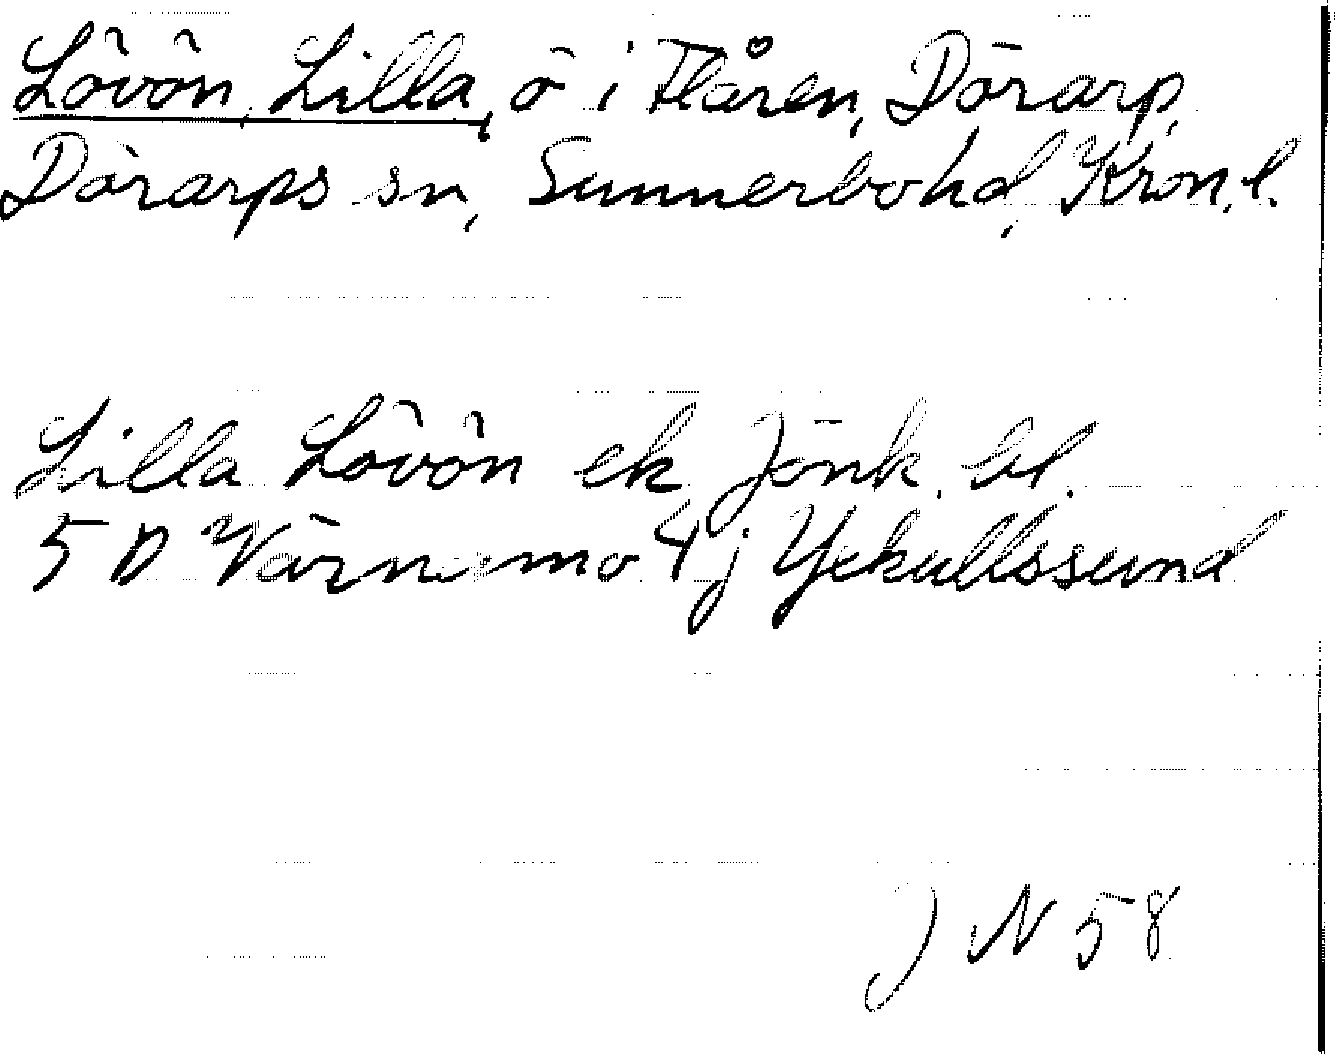 Lövön, Lilla, ö i Flåren, Dörarp,
Dörarps sn, Sunnerbohd, Kron. l.
Lilla Lövön ek Jönk. bl.
5 D Värnamo 4 j Yekullssund
J N 58